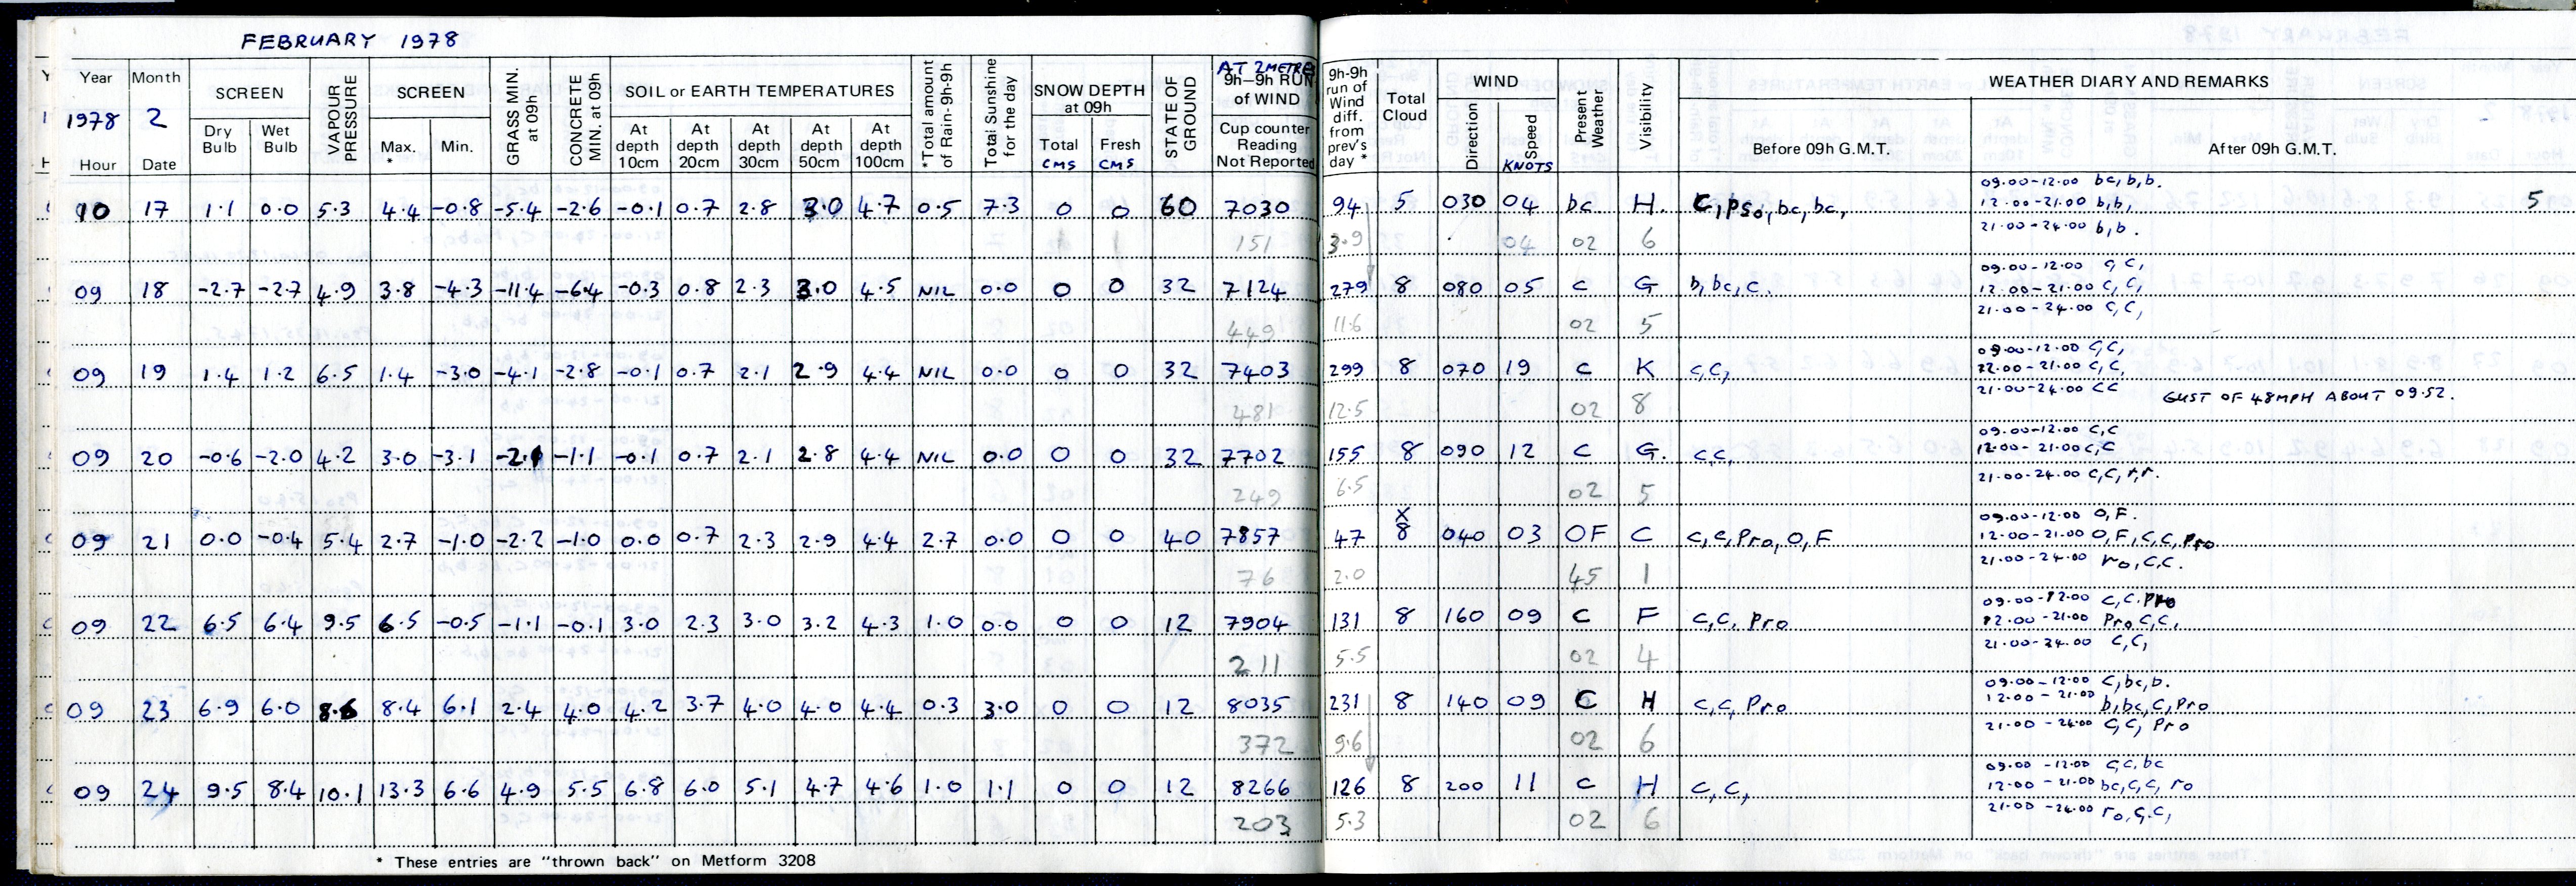 FEBRUARY 1978
Year Month SCREEN VAPOUR PRESSURE SCREEN GRASS MIN. at 09h CONCRETE MIN. at 09h SOIL or EARTH TEMPERATURES *Total amount of Rain-9h-9h Total Sunshine for the day SNOW DEPTH at 09h STATE OF GROUND AT 2METRES 9h-9h RUN of WIND 9h-9h run of Wind diff. from prev's day * Total Cloud WIND Present Weather Visibility WEATHER DIARY AND REMARKS
1978 2 Dry Bulb Wet Bulb Max. * Min. At depth 10cm At depth 20cm At depth 30cm At depth 50cm At depth 100cm Total CMS Fresh CMS Cup counter Reading Not Reported Direction Speed KNOTS Before 09h G.M.T. After 09h G.M.T.
Hour Date
09.00-12.00 bc, b, b.
10 17 1.1 0.0 5.3 4.4 -0.8 -5.4 -2.6 -0.1 0.7 2.8 3.0 4.7 0.5 7.3 0 0 60 7030 94 5 030 04 bc H. C, pso, bc, bc, 12.00-21.00 b, b, 5
151 3.9 04 02 6 21.00-24.00 b, b.
09.00-12.00 C, C,
09 18 -2.7 -2.7 4.9 3.8 -4.3 -11.4 -6.4 -0.3 0.8 2.3 3.0 4.5 NIL 0.0 0 0 32 7124 279 8 080 05 C G b, bc, c. 12.00-21.00 C, C,
449 11.6 02 5 21.00-24.00 C, C,
09.00-12.00 C, C,
09 19 1.4 1.2 6.5 1.4 -3.0 -4.1 -2.8 -0.1 0.7 2.1 2.9 4.4 NIL 0.0 0 0 32 7403 299 8 070 19 C K C, C, 12.00-21.00 C, C,
481 12.5 02 8 21.00-24.00 C C GUST OF 48MPH ABOUT 09.52.
09.00-12.00 C, C
09 20 -0.6 -2.0 4.2 3.0 -3.1 -2.1 -1.1 -0.1 0.7 2.1 2.8 4.4 NIL 0.0 0 0 32 7702 155 8 090 12 C G. C, C, 12.00-21.00 C, C
249 6.5 02 5 21.00-24.00 C, C, r, r.
X 09.00-12.00 O, F.
09 21 0.0 -0.4 5.4 2.7 -1.0 -2.2 -1.0 0.0 0.7 2.3 2.9 4.4 2.7 0.0 0 0 40 7857 47 8 040 03 OF C C, C, Pro, O, F 12.00-21.00 O, F, C, C, Pro
76 2.0 45 1 21.00-24.00 ro, C, C.
09.00-12.00 C, C. Pro
09 22 6.5 6.4 9.5 6.5 -0.5 -1.1 -0.1 3.0 2.3 3.0 3.2 4.3 1.0 0.0 0 0 12 7904 131 8 160 09 C F C, C, Pro 12.00-21.00 Pro, C, C,
211 5.5 02 4 21.00-24.00 C, C,
09.00-12.00 C, bc, b.
09 23 6.9 6.0 8.6 8.4 6.1 2.4 4.0 4.2 3.7 4.0 4.0 4.4 0.3 3.0 0 0 12 8035 231 8 140 09 C H C, C, Pro 12.00-21.00 b, bc, C, Pro
372 9.6 02 6 21.00-24.00 C, C, Pro
09.00-12.00 C, C, bc
09 24 9.5 8.4 10.1 13.3 6.6 4.9 5.5 6.8 6.0 5.1 4.7 4.6 1.0 1.1 0 0 12 8266 126 8 200 11 C H C, C, 12.00-21.00 bc, C, C, ro
203 5.3 02 6 21.00-24.00 ro, C, C,
* These entries are "thrown back" on Metform 3208